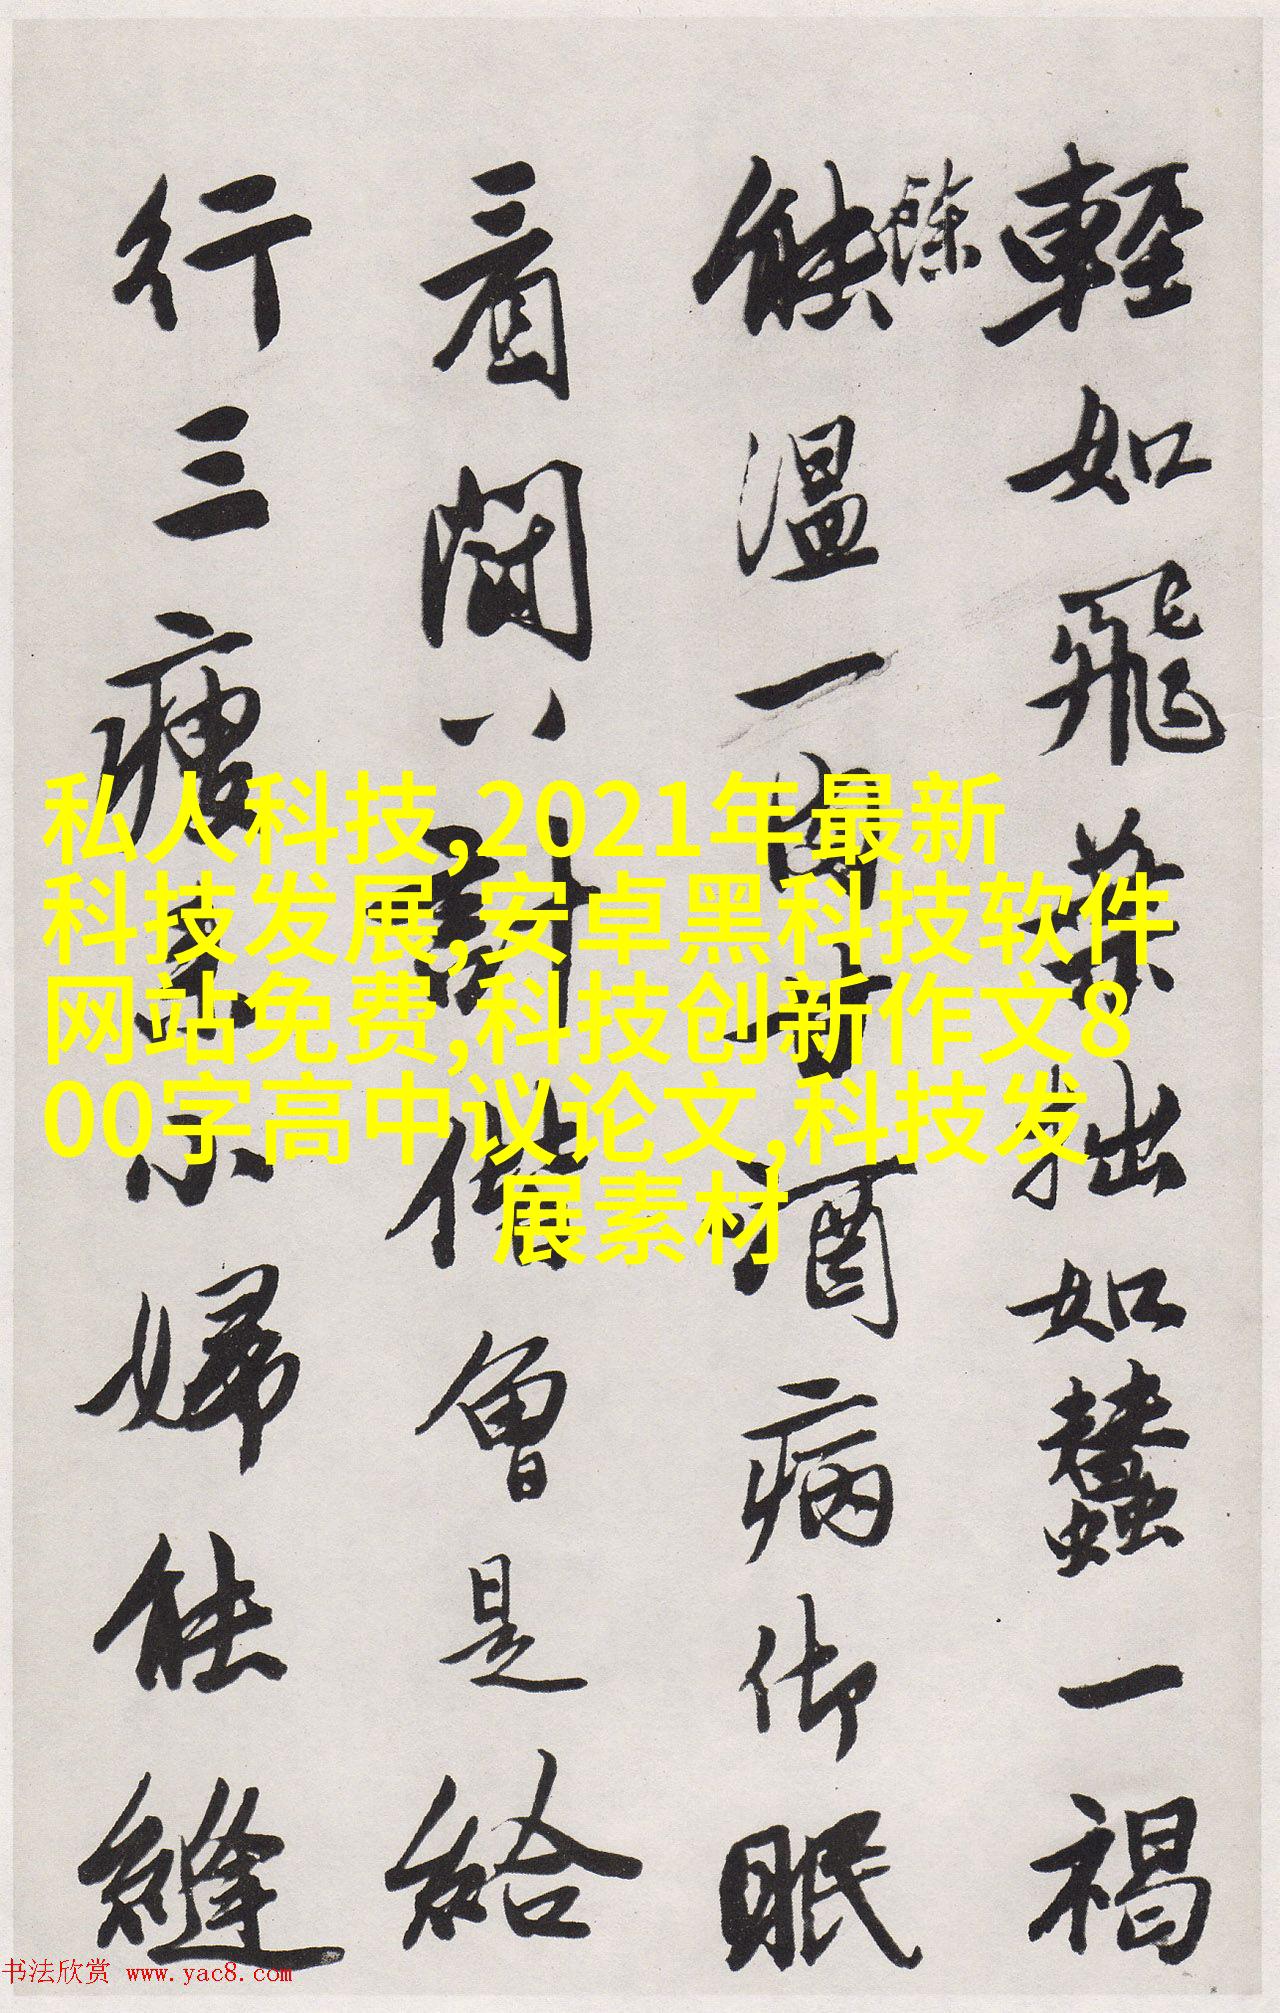 輕如飛葉拙如蠶一褐
餘
能溫一酒病御眠
看八曾是給
行三瘦小婦能縫
私人科技,2021年最新
科技发展,安卓黑科技软件
网站免费,科技创新作文8
00字高中议论文,科技发
展素材
书法欣赏 www.yac8.com